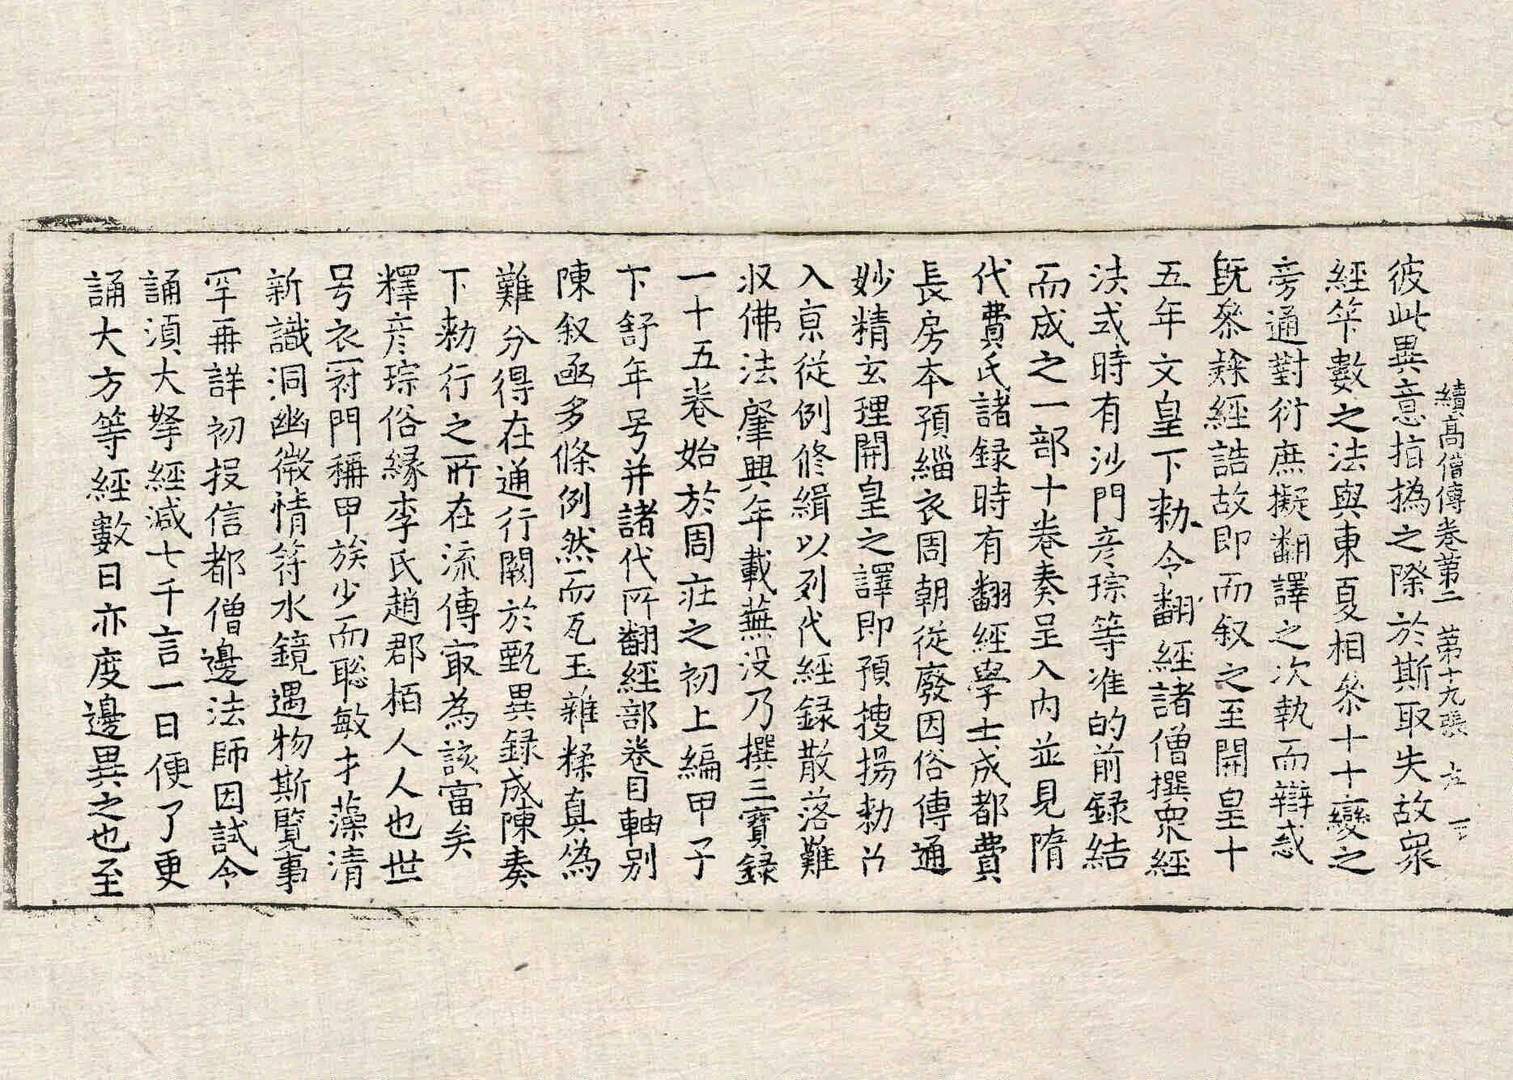 續高僧傳卷第二　第十九張
彼此異意指撝之際於斯取失故眾
經筭數之法與東夏相叅十十變之
旁通對衍庶擬翻譯之次執而辯惑
旣叅緣經誥故即而叙之至開皇十
五年文皇下勑令翻經諸僧撰眾經
法式時有沙門彦琮等准的前録結
而成之一部十卷奏呈入内並見隋
代費氏諸録時有翻經學士成都費
長房本預緇衣周朝從廢因俗傳通
妙精玄理開皇之譯即預搜揚勑召
入京從例修緝以列代經録散落難
収佛法肇興年載蕪没乃撰三寳録
一十五卷始於周莊之初上編甲子
下舒年号并諸代所翻經部卷目軸别
陳叙函多條例然而瓦玉雜糅真偽
難分得在通行闕於甄異録成陳奏
下勑行之所在流傳㝡為該富矣
釋彦琮俗縁李氏趙郡栢人人也世
号衣冠門稱甲族少而聡敏才藻清
新識洞幽微情符水鏡遇物斯覽事
罕再詳初投信都僧邊法師因試令
誦湏大拏經減七千言一日便了更
誦大方等經數日亦度邊異之也至